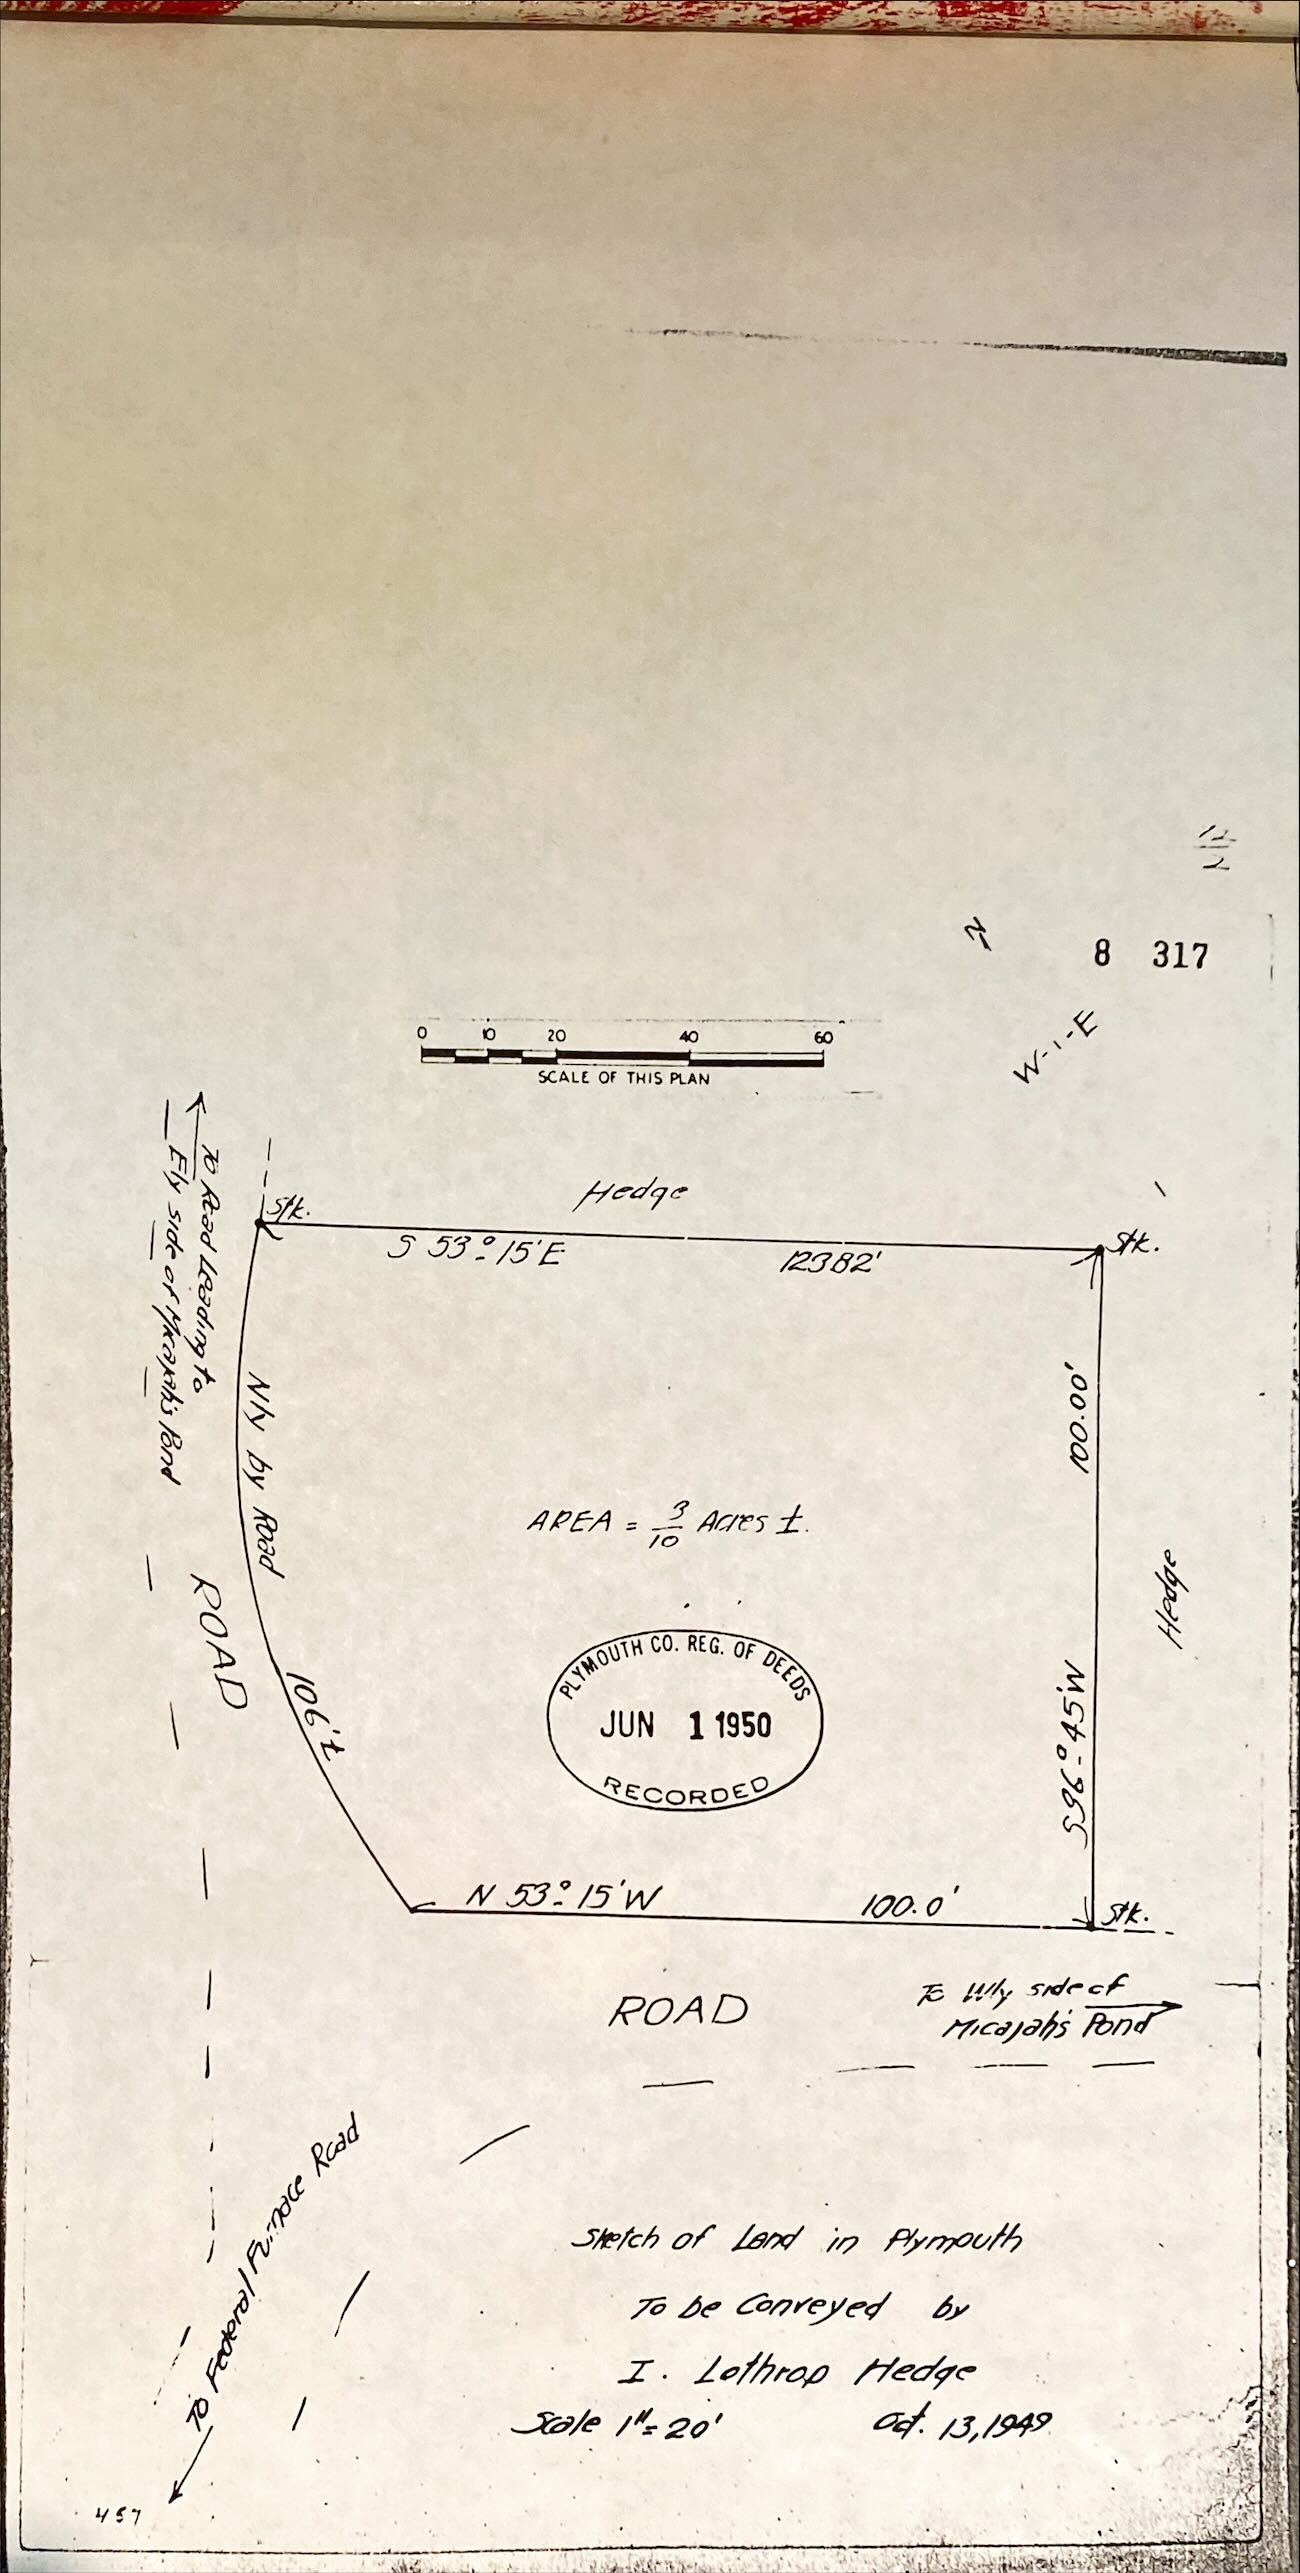 12
2
N
8 317
W-1-E
0 10 20 40 60
SCALE OF THIS PLAN
To Road Leading to
Ely side of Micajah's Pond
Stk.
Hedge
Stk.
S 53° 15' E 123.82'
Nly by Road
100.00'
AREA = 3/10 Acres ±.
Hedge
ROAD
106'±
S 96° 45' W
PLYMOUTH CO. REG. OF DEEDS
JUN 1 1950
RECORDED
N 53° 15' W 100.0'
Stk.
ROAD
To Wly side of
Micajah's Pond
To Federal Furnace Road
Sketch of Land in Plymouth
To be Conveyed by
I. Lothrop Hedge
Scale 1"= 20' Oct. 13, 1949
457